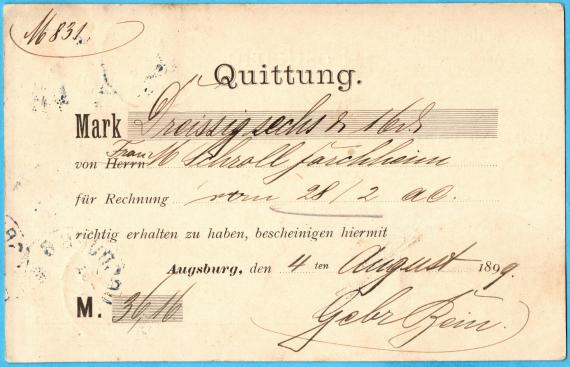 M 831
Quittung.
Mark Dreissigsechs & 16 ₰
Frau
von Herrn M Schroll Forchheim
für Rechnung vom 28/2 ac.
richtig erhalten zu haben, bescheinigen hiermit
Augsburg, den 4 ten August 1899.
M. 36/16
Gebr